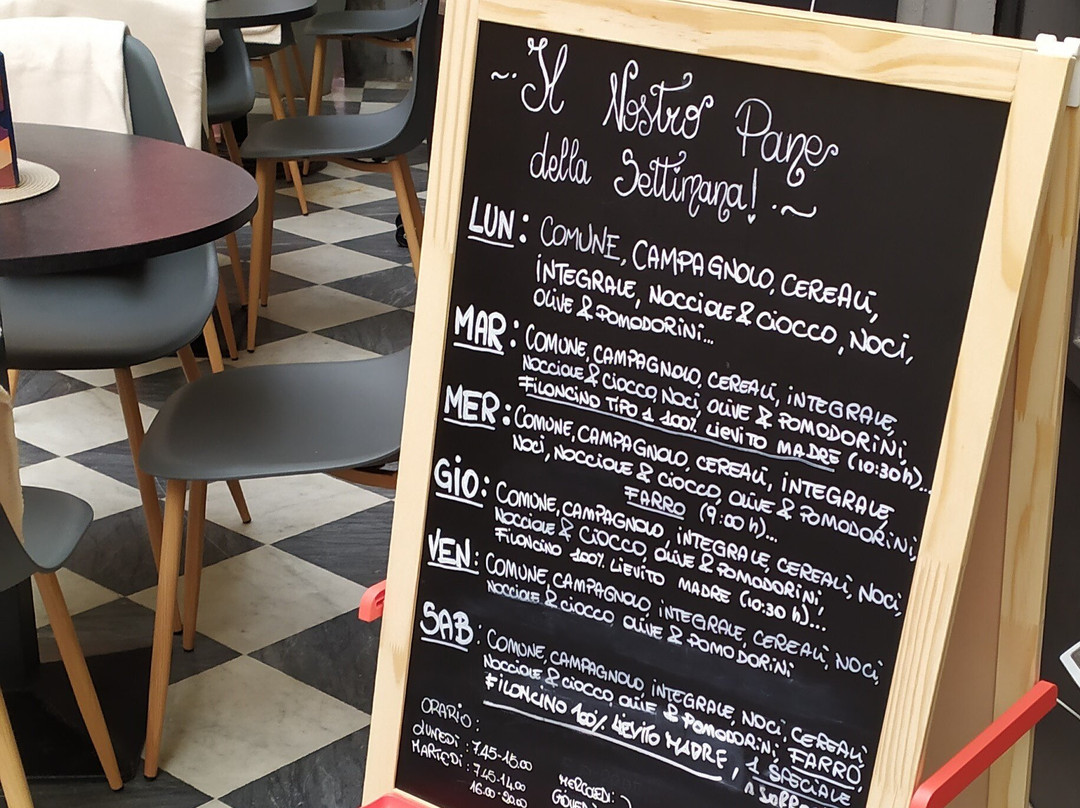 ~· Il Nostro Pane
della Settimana! ·~
LUN: COMUNE, CAMPAGNOLO, CEREALI,
INTEGRALE, NOCCIOLE & CIOCCO, NOCI,
OLIVE & POMODORINI...
MAR: COMUNE, CAMPAGNOLO, CEREALI, INTEGRALE,
NOCCIOLE & CIOCCO, NOCI, OLIVE & POMODORINI,
FILONCINO TIPO 1 100% LIEVITO MADRE (10:30 h)...
MER: COMUNE, CAMPAGNOLO, CEREALI, INTEGRALE,
NOCI, NOCCIOLE & CIOCCO, OLIVE & POMODORINI,
FARRO (9:00 h)...
GIO: COMUNE, CAMPAGNOLO, INTEGRALE, CEREALI, NOCI,
NOCCIOLE & CIOCCO, OLIVE & POMODORINI,
FILONCINO 100% LIEVITO MADRE (10:30 h)...
VEN: COMUNE, CAMPAGNOLO, INTEGRALE, CEREALI, NOCI,
NOCCIOLE & CIOCCO OLIVE & POMODORINI
SAB: COMUNE, CAMPAGNOLO INTEGRALE, NOCI, CEREALI
NOCCIOLE & CIOCCO, OLIVE & POMODORINI, FARRO,
FILONCINO 100% LIEVITO MADRE, 1 SPECIALE
ORARIO:
LUNEDI: 7.45-15.00
MARTEDI: 7.45-14.00
16.00-20.00
MERCOLEDI: